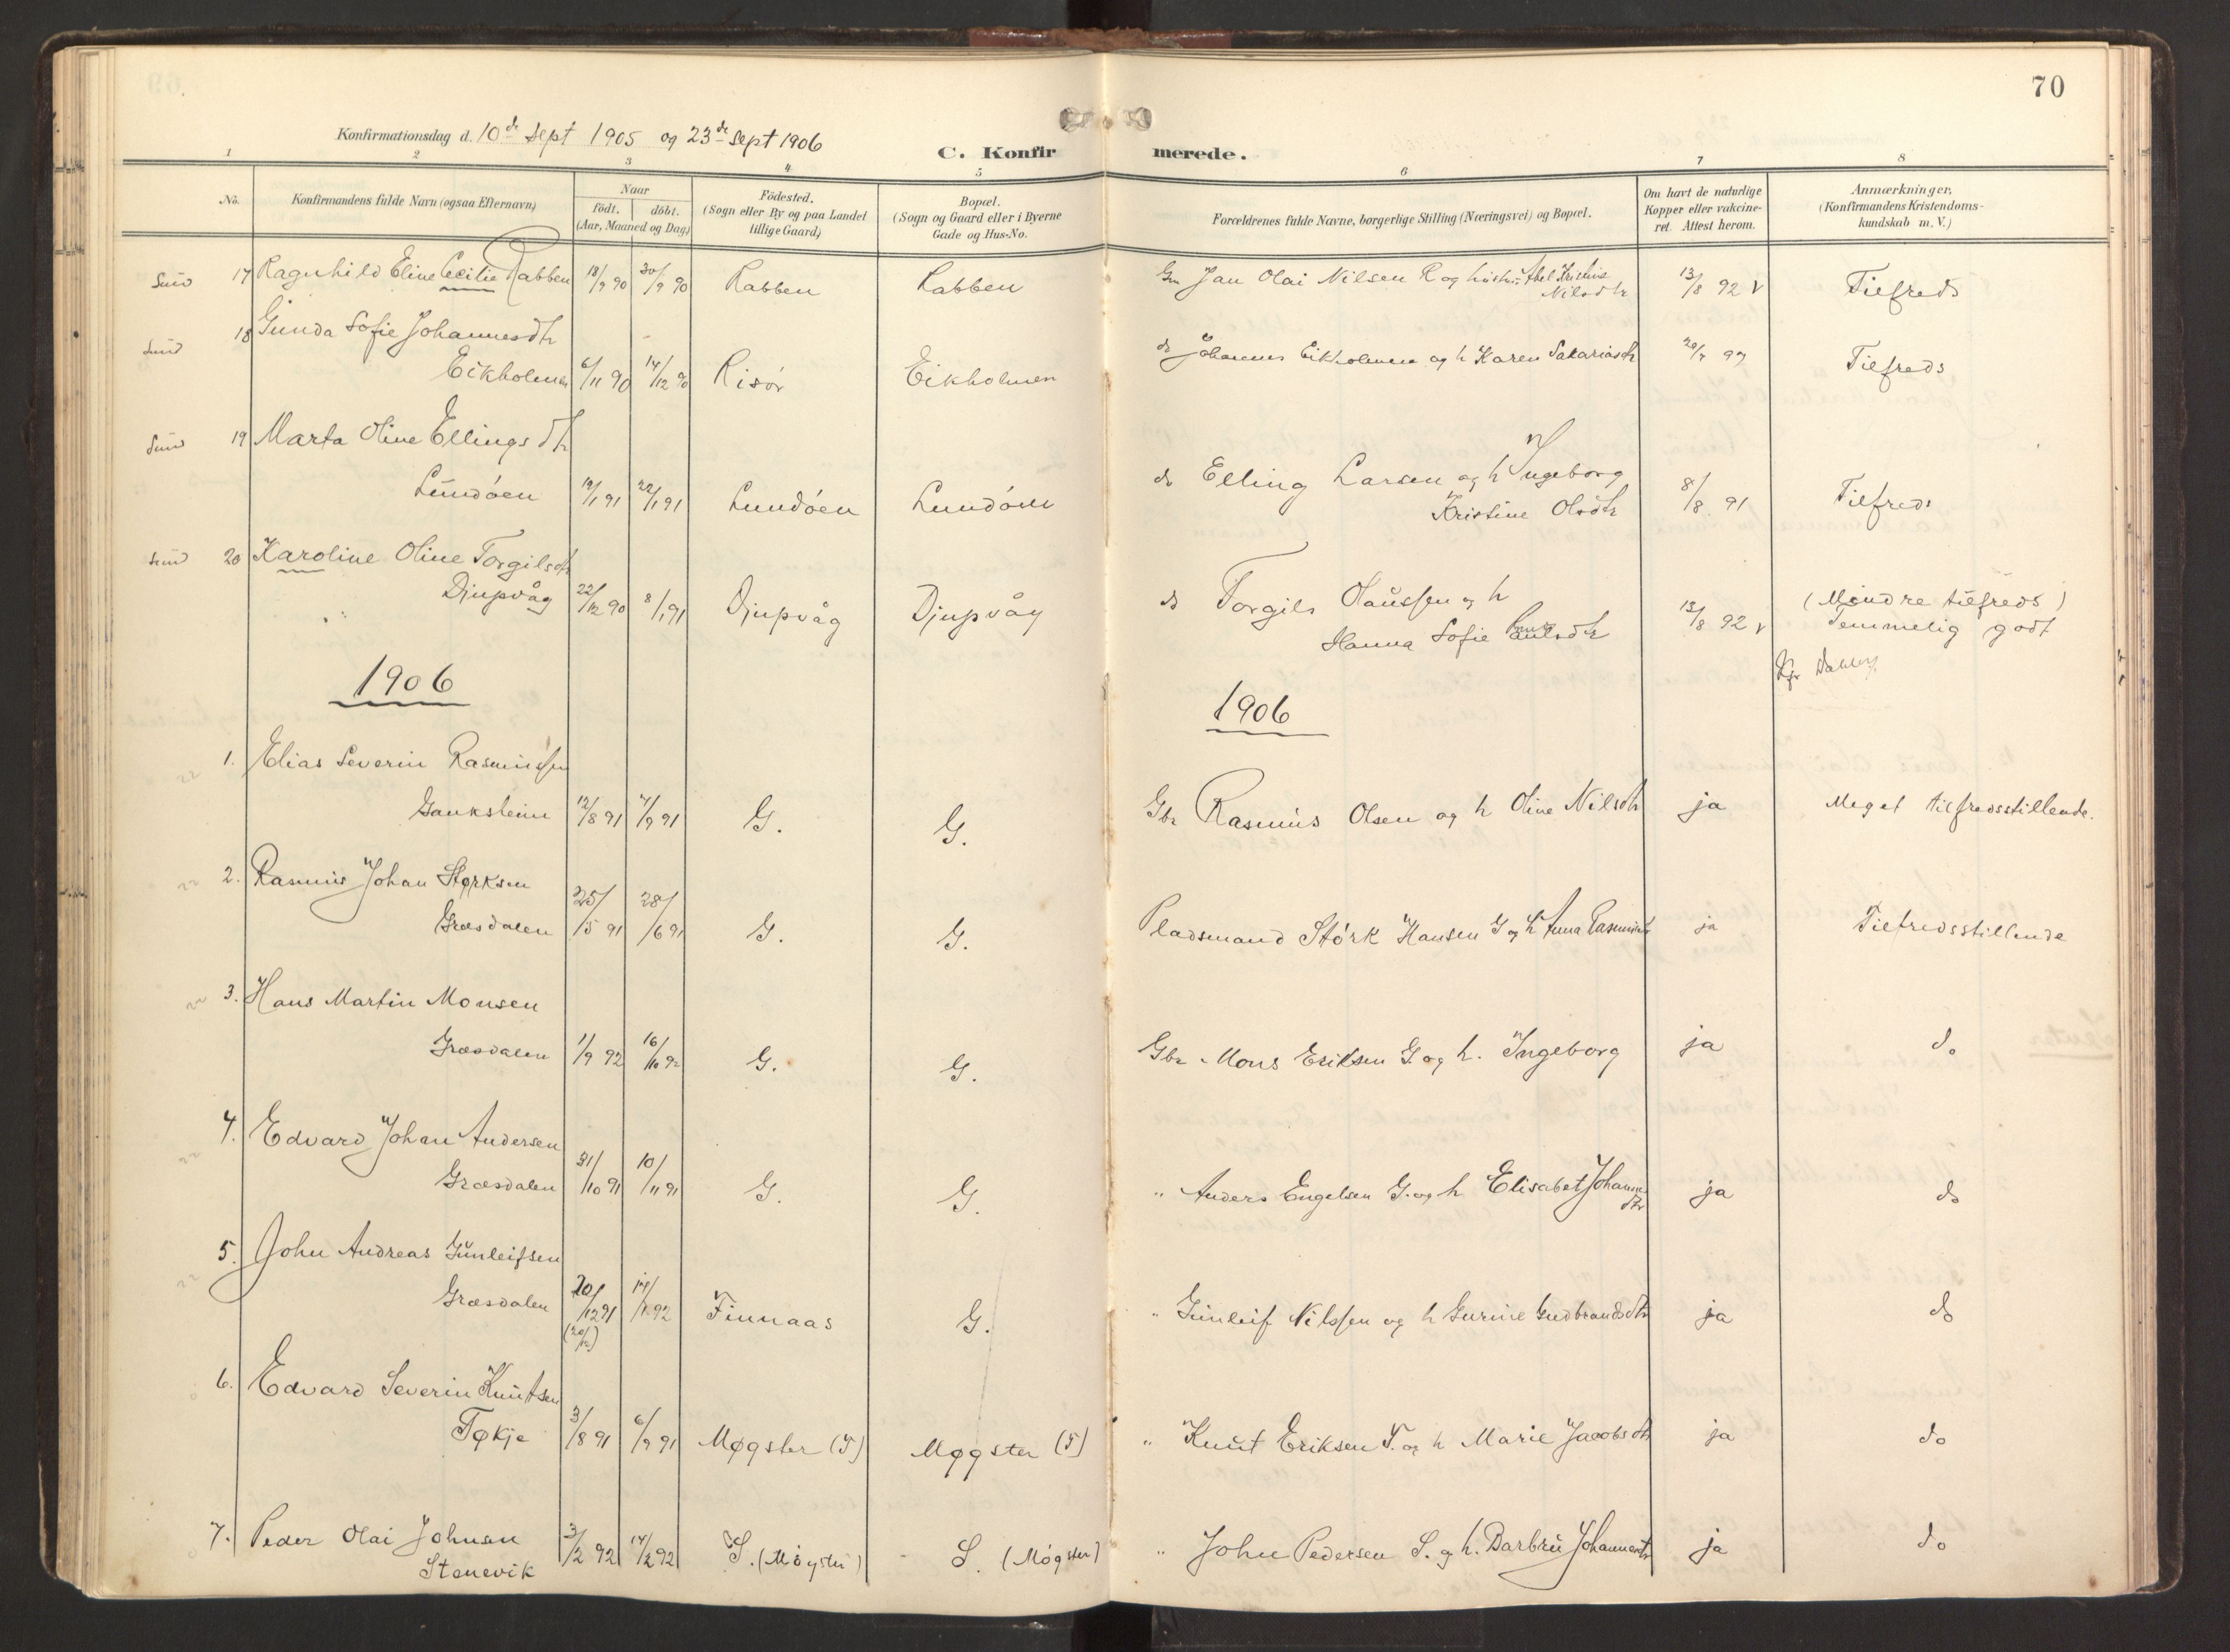 70
Konfirmationsdag d. 10de Sept 1905 og 23de Sept 1906
C. Konfirmerede.
1 2 3 4 5 6 7 8
No.
Konfirmandens fulde Navn (ogsaa Efternavn)
Naar
födt. döbt.
(Aar, Maaned og Dag)
Födested.
(Sogn eller By og paa Landet
tillige Gaard)
Bopæl.
(Sogn og Gaard eller i Byerne
Gade og Hus-No.
Forældrenes fulde Navne, borgerlige Stilling (Næringsvei) og Bopæl.
Om havt de naturlige
Kopper eller vakcine-
ret. Attest herom.
Anmærkninger,
(Konfirmandens Kristendoms-
kundskab m. V.)
Sund 17 Ragnhild Eline Cecilie Rabben 18/9 90 30/9 90 Rabben Rabben Gm Jan Olai Nilsen R og hustru Abel Kristine Nilsdtr 13/8 92 v Tilfreds
Sund 18 Gunda Sofie Johannesdtr
Eikholmen 6/11 90 14/12 90 Risör Eikholmen do Johannes Eikholmen og h Karen Sakariasdtr Tilfreds
Sund 19 Marta Oline Ellingsdtr
Lundöen 19/1 91 22/1 91 Lundöen Lundöen do Elling Larsen og h Ingeborg
Kristine Olsdtr 8/8 91 Tilfreds
Sund 20 Karoline Oline Torgilsdtr
Djupvåg 22/12 90 8/1 91 Djupvåg Djupvåg do Torgils Olaussen og h
Hanna Sofie 13/8 92 v (Mindre tilfreds)
Temmelig godt
1906 1906
1. Elias Severin Rasmussen
Gauksheim 12/8 91 7/9 91 G. G. Gbr Rasmus Olsen og h Oline Nilsdtr ja Meget tilfredsstillende.
2. Rasmus Johan Størksen
Græsdalen 25/5 91 28/6 91 G. G. Pladsmand Störk Hansen G og h Anna Rasmusd ja Tilfredsstillende
3. Hans Martin Monsen
Græsdalen 1/9 92 16/10 92 G. G. Gbr Mons Eriksen G. og h. Ingeborg ja do
4. Edvard Johan Andersen
Græsdalen 31/10 91 10/11 91 G. G. " Anders Engelsen G. og h Elisabet Johannesdtr ja do
5. John Andreas Gunleifsen
Græsdalen 20/12 91 /1 92 Finnaas G. " Gunleif Nilssen og h Gurine Gudbrandsdtr ja do
(20/12)
6. Edvard Severin Knutsen
Tøkje 3/8 91 6/9 91 Møgster (T) Møgster (T) " Knut Eriksen T. og h Marie Jacobsdtr ja do
7. Peder Olai Johnsen 3/2 92 14/2 92 S. (Møgster) S. (Møgster) " John Pedersen S. og h. Barbru Johannesdtr ja do
Stenevik